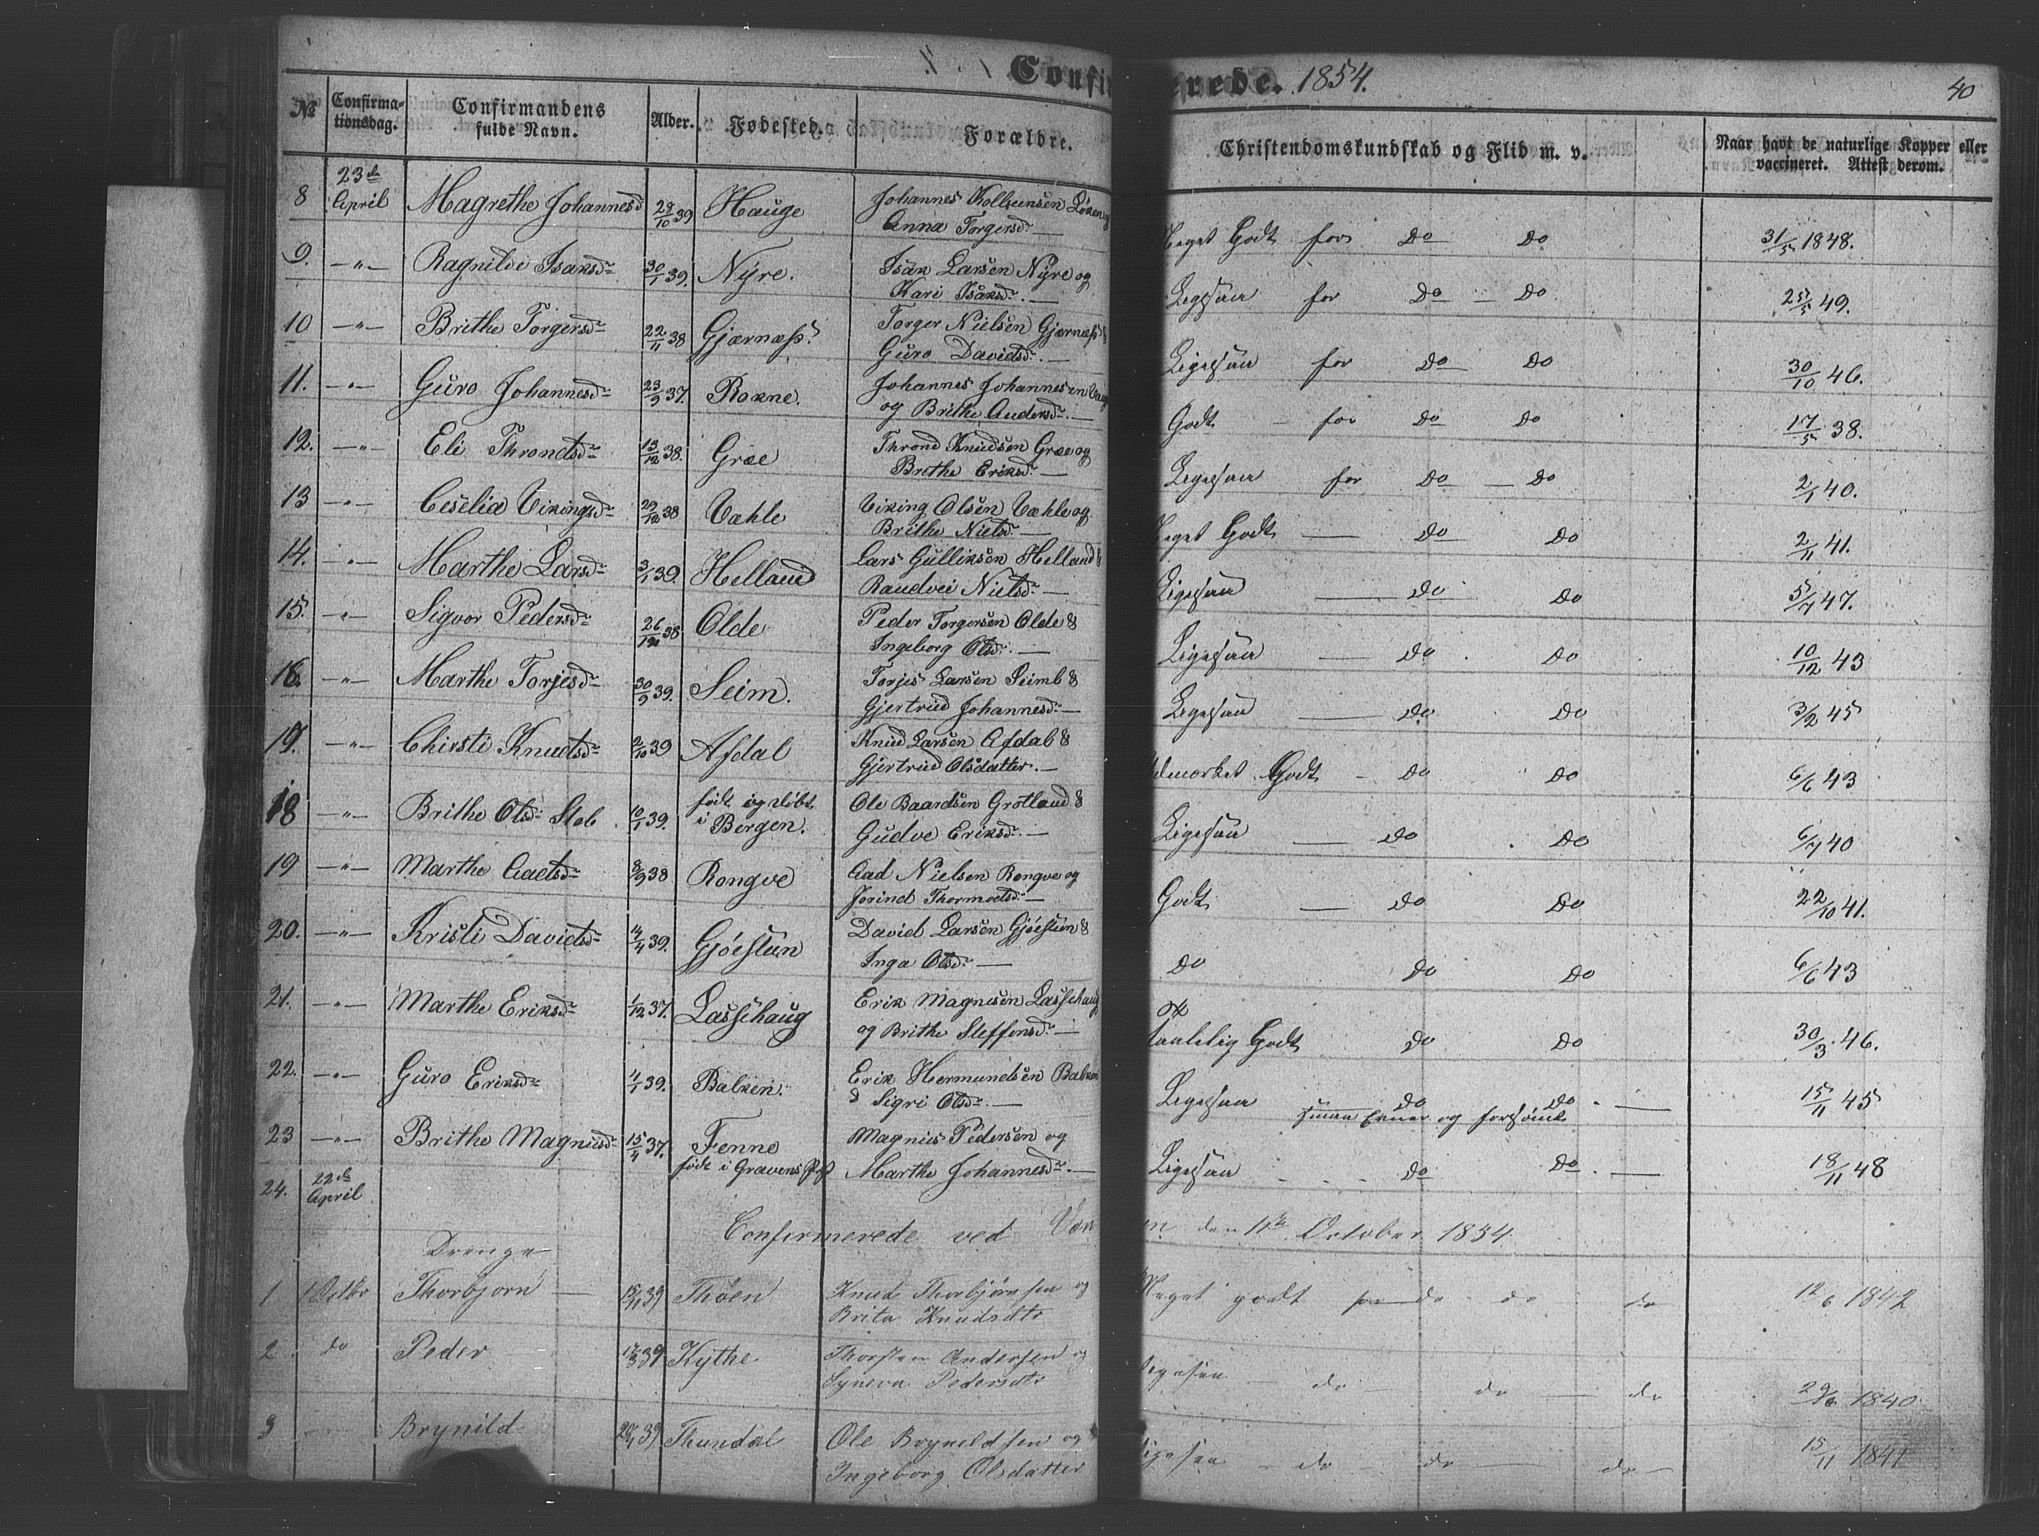 Confirmerede. 1854. 40
№ Confirmationsdag. Confirmandens fulde Navn. Alder. Fødested. Forældre. Christendomskundskab og Flid m. v. Naar havt de naturlige Kopper eller vaccineret. Attest derom.
8 23de April Magrethe Johannesd 28/10 39 Hauge Johannes
Anna Torgersd. — Meget Godt for do do 31/5 1848.
9. —"— Ragnilde Isaksd 30/1 39. Nyre. Isak Larsen Nyre og
Kari Isaksd. — Ligesaa for do — do 25/5 49.
10 —"— Brithe Torgersd 22/11 38 Gjærnæss. Torger Nielsen Gjærnæss &
Guro Davidsd. — Ligesaa for do do 30/10 46.
11. —"— Guro Johannesd 23/9 37. Rokne. Johannes Johannesen
og Brithe Andersd. — Godt - for do do 17/5 38.
12. —"— Eli Throndsd 13/12 38. Græe Thrond Knudsen Græe og
Brithe Eriksd. — Ligesaa for do — do 2/1 40.
13 —"— Ceselia Vikingsd 29/12 38 Væhle Viking Olsen Væhle og
Brithe Nielsd. — Meget Godt — do do 2/11 41.
14. —"— Marthe Larsd 3/1 39. Helland Lars Gulliksen Helland &
Randvei Nielsd. — Ligesaa — do do 5/7 47.
15. —"— Sigvor Pedersd 26/12 38 Olde Peder Torgersen Olde &
Ingeborg Olsd. — Ligesaa — do do 10/12 43
16. —"— Marthe Torjesd 30/9 39. Seim. Torjes Larsen Seimb &
Gjertrud Johannesd. — Ligesaa — do do 3/2 45
17. —"— Chirsti Knudsd 2/10 39 Afdal Knud Larsen Afdal &
Gjertrud Olsdatter. — Udmærket Godt - do do 6/6 43
18 —"— Brithe Olsd 10/1 39. født og døbt
i Bergen. Ole Baardsen Grotland &
Gudve Eriksd. — Ligesaa — do do 6/7 40
19 —"— Marthe Aadsd 8/9 38 Rongve Aad Nielsen Rongve og
Jorind Thormodsd. — Godt — do do 22/10 41.
20. —"— Kristi Davidsd 4/4 39. Gjøestun David Larsen Gjøestun &
Inga Olsd. — do do do 6/6 43
21. —"— Marthe Eriksd 1/12 37. Lassehaug Erik Magnesen Lassehaug
og Brithe Steffensd. — taalelig Godt do do 30/3 46.
22. —"— Guro Eriksd 4/1 39. Balken. Erik Hermundsen Balken
& Sigri Olsd. — Ligesaa do do. — 15/11 45
smaa Evner og forsømt
23 —"— Brithe Magnusd 15/4 37. Fenne
født i Gravens Magnus Pedersen og
Marthe Johannesd. — Ligesaa do do. — 18/11 48
24. 22de April
Confirmerede ved den 1te October 1854
Drenge
1 1 Octbr Thorbjørn — 15/11 39 Thøen Knud Thorbjørnsen og
Brita Knudsdtr Meget godt for do - do - do 12/6 1842
2 do Peder 39 Kythe Thorsten Andersen og
Synneva Pedersdtr Ligesaa — do — do — do 29/6 1840.
3 Brynild 39 Thundal Ole Brynildsen og
Ingeborg Olsdatter Ligesaa — do — do — do — 15/11 1841